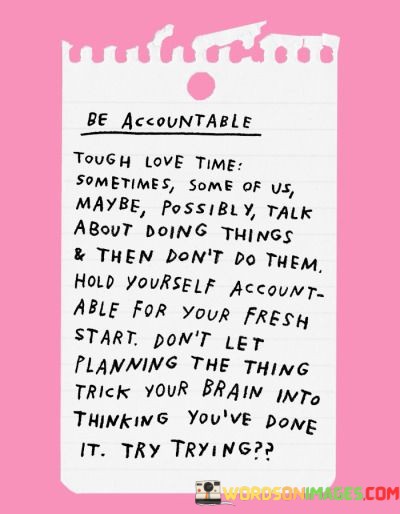 BE ACCOUNTABLE
TOUGH LOVE TIME:
SOMETIMES, SOME OF US,
MAYBE, POSSIBLY, TALK
ABOUT DOING THINGS
& THEN DON'T DO THEM.
HOLD YOURSELF ACCOUNT-
ABLE FOR YOUR FRESH
START. DON'T LET
PLANNING THE THING
TRICK YOUR BRAIN INTO
THINKING YOU'VE DONE
IT. TRY TRYING??
WORDSONIMAGES.COM